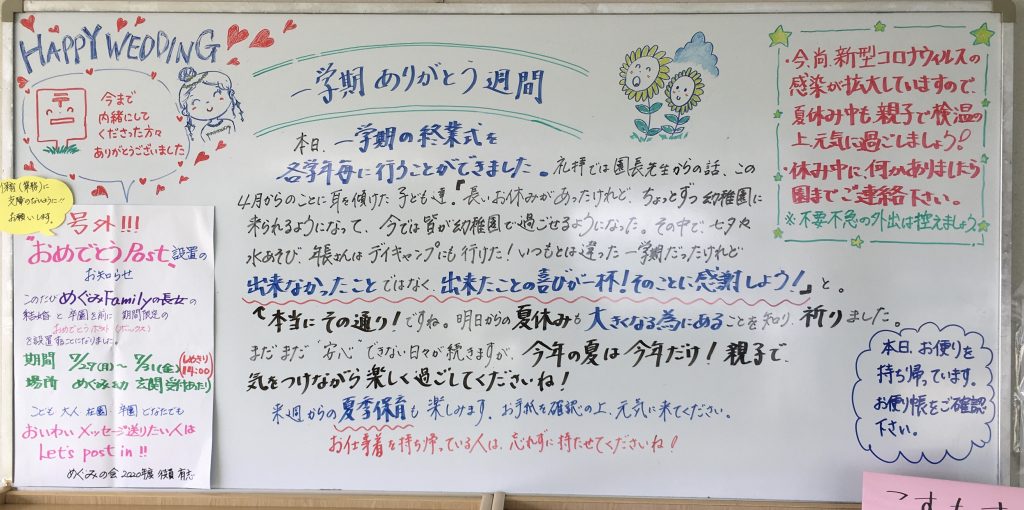 HAPPY WEDDING
今まで
内緒にして
くださった方々
ありがとうございました
お願いします。
号外!!!
"おめでとうPost"設置の
お知らせ
このたび めぐみFamilyの長女の
結婚と卒園を前に 期間限定の
おめでとうポスト(ボックス)
を設置することになりました。
期間 7/27(月)〜7/31(金)
しめきり
14:00
場所 めぐみ幼 玄関受付あたり
こども 大人 在園 卒園 どなたでも
おいわいメッセージ送りたい人は
Let's post in!!
めぐみの会 2020年度 役員 有志
一学期ありがとう週間
本日、一学期の終業式を
各学年毎に行うことができました。礼拝では園長先生からの話、この
4月からのことに耳を傾けた子ども達。「長いお休みがあったけれど、ちょっとずつ幼稚園に
来られるようになって、今では皆が幼稚園で過ごせるようになった。その中で、七夕や
水あそび、年長さんはデイキャンプにも行けた!いつもとは違った一学期だったけれど
出来なかったことではなく、出来たことの喜びが一杯!そのことに感謝しよう!」と。
本当にその通り!ですね。明日からの夏休みも大きくなる為にあることを知り、祈りました。
まだまだ"安心"できない日々が続きますが、今年の夏は今年だけ!親子で、
気をつけながら楽しく過ごしてくださいね!
来週からの夏季保育も楽しみます。お手紙を確認の上、元気に来てください。
お仕事着を持ち帰っている人は、忘れずに持たせてくださいね!
・今尚、新型コロナウィルスの
感染が拡大していますので、
夏休み中も親子で検温の
上、元気に過ごしましょう!
・休み中に何かありましたら
園までご連絡下さい。
※不要不急の外出は控えましょう
本日、お便りを
持ち帰っています。
お便り帳をご確認
下さい。